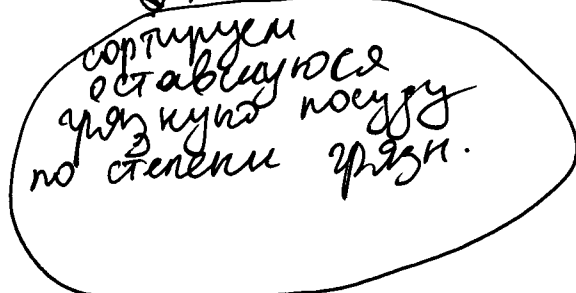 сортируем
оставшуюся
грязную посуду
по степени грязн.